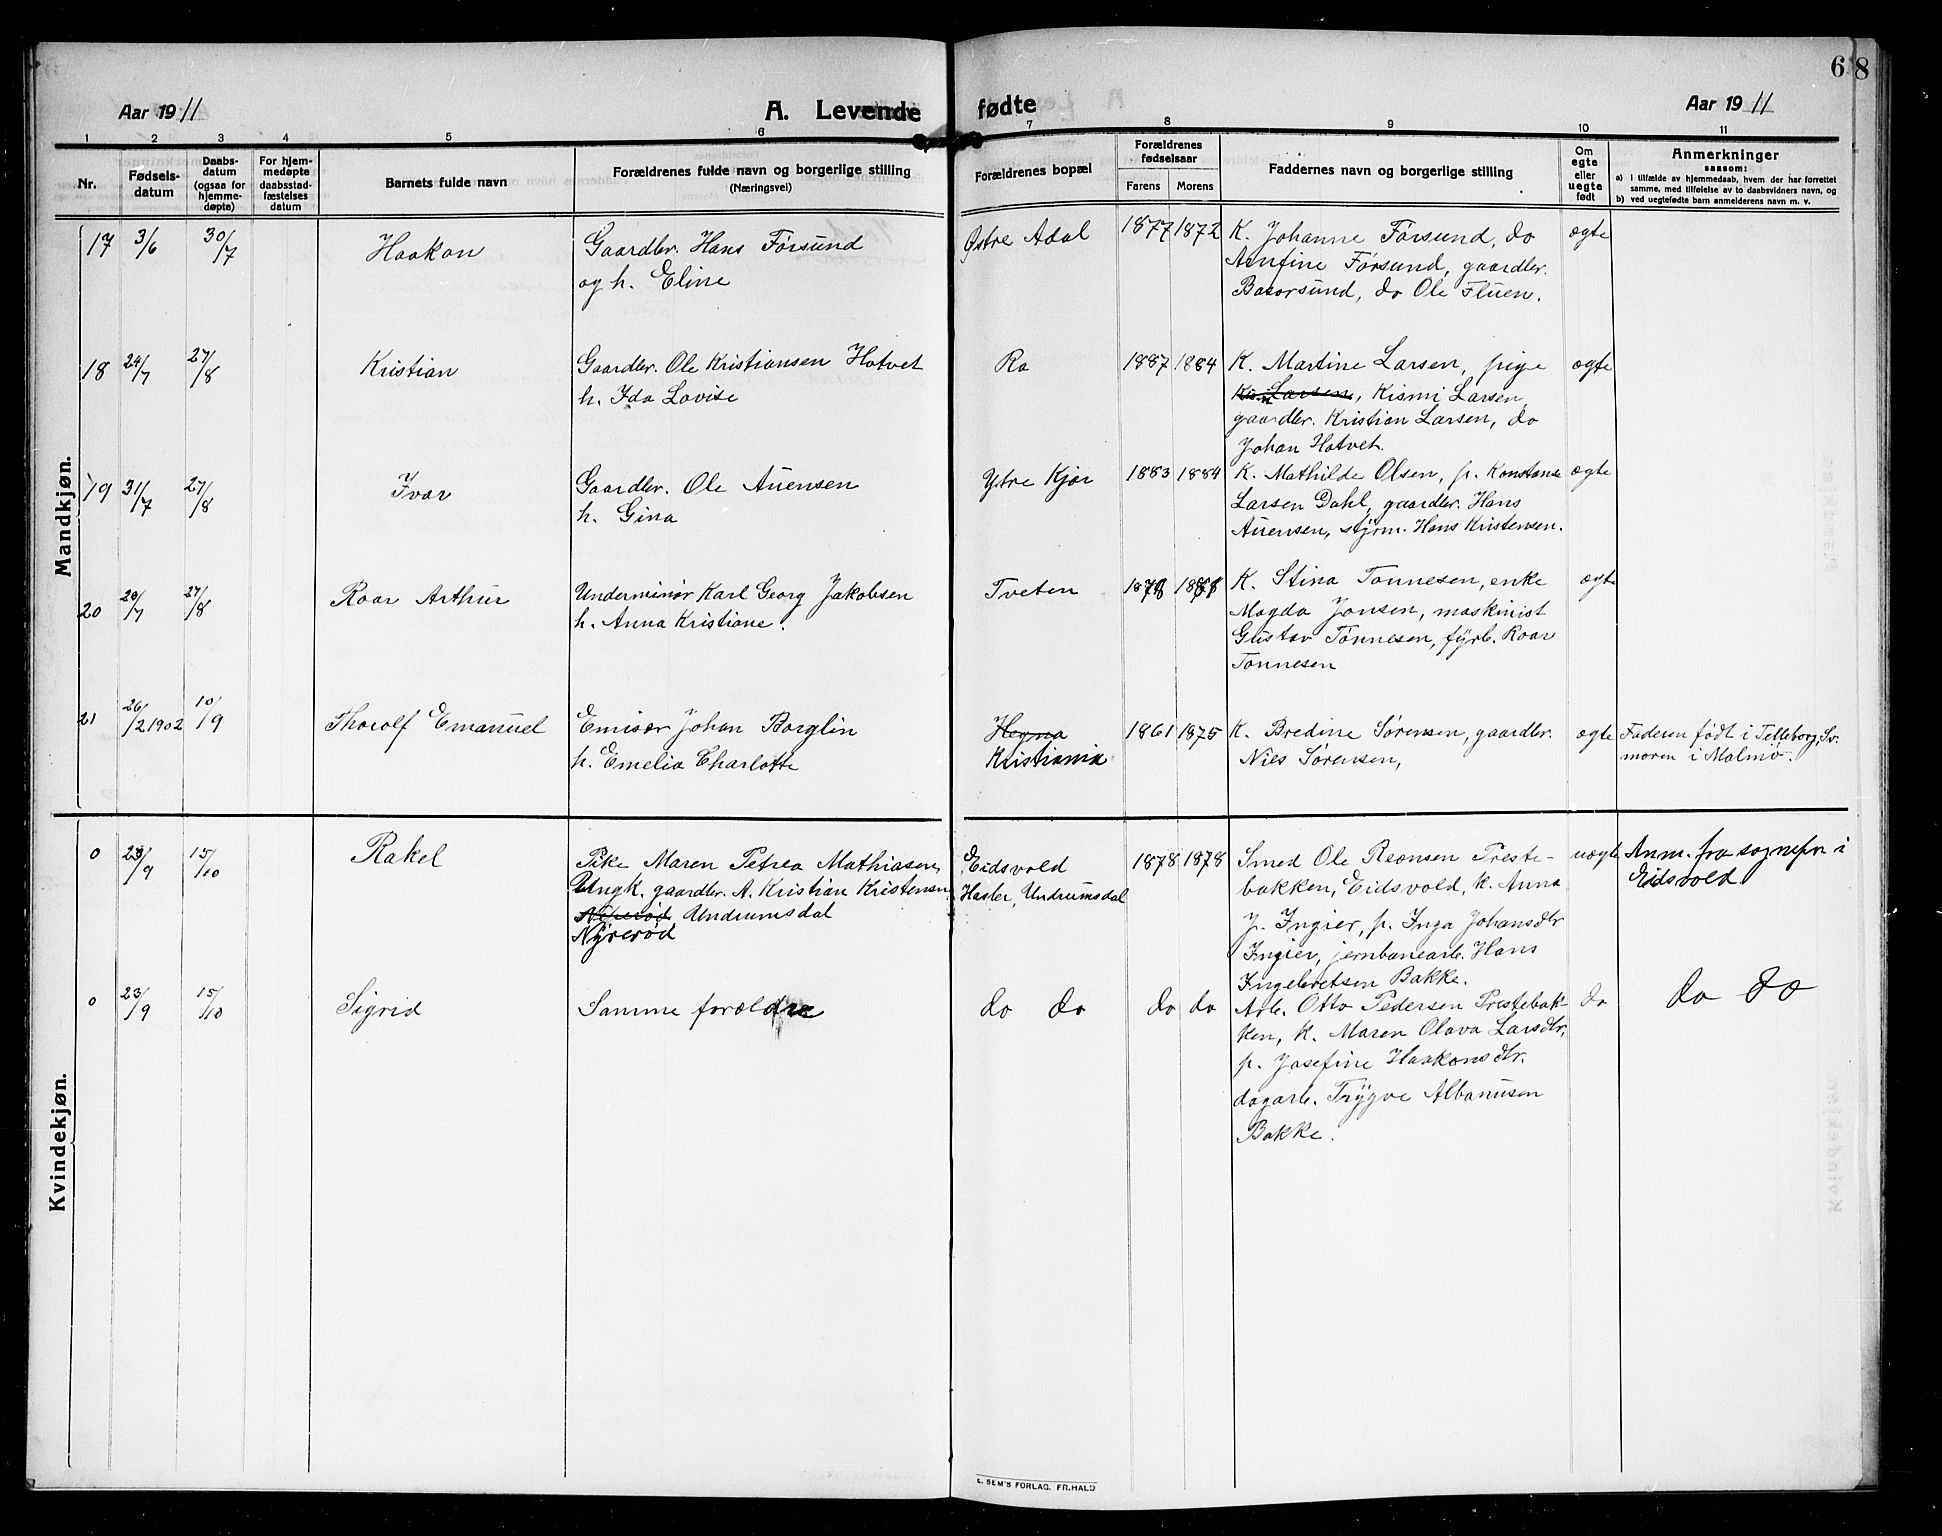 68
Aar 1911
A. Levende fødte
Aar 1911
1 2 3 4 5 6 7 8 9 10 11
Nr.
Fødsels-
datum
Daabs-
datum
(ogsaa for
hjemme-
døpte)
For hjem-
medøpte
daabsstad-
fæstelses
datum
Barnets fulde navn
Forældrenes fulde navn og borgerlige stilling
(Næringsvei)
Forældrenes bopæl
Forældrenes
fødselsaar
Farens Morens
Faddernes navn og borgerlige stilling
Om
egte
eller
uegte
født
Anmerkninger
saasom:
a) i tilfælde av hjemmedaab, hvem der har forrettet
samme, med tilføielse av to daabsvidners navn, og
b) ved uegtefødte barn anmelderens navn m. v.
Mandkjøn.
17 3/6 30/7 Haakon
Gaardbr. Hans Førsund
og h. Eline
Østre Adal 1877 1872
K. Johanne Førsund, do
Arnfine Førsund, gaardbr.
Basorsund, do Ole Fluen.
ægte
18 24/7 27/8 Kristian
Gaardbr. Ole Kristiansen Hotvet
h. Ida Lovise
Ra 1887 1884
K. Martine Larsen, pige
Larsen, Kismi Larsen,
gaardbr. Kristian Larsen, do
Johan Hotvet.
ægte
19 31/7 27/8 Ivar
Gaardbr. Ole Auensen
h. Gina
Ytre Kjær 1883 1884
K. Mathilde Olsen, p. Konstanse
Larsen Dahl, gaardbr. Hans
Auensen, styrm. Hans Kristensen.
ægte
20 20/7 27/8 Roar Arthur
Underminør Karl Georg Jakobsen
h. Anna Kristiane.
Tveten
K. Stina Tønnesen, enke
Magda Jansen, maskinist
Gustav Tønnesen, fyrb. Roar
Tønnesen
ægte
21 26/2 1902 10/9 Thorolf Emanuel
Emisær Johan Borglin
h. Emelia Charlotte
Hegna
Kristiania
1861 1875
K. Bredine Sørensen, gaardbr.
Nies Sørensen,
ægte
Faderen født i Telleborg, Sv.
moren i Malmø.
Kvindekjøn.
0 23/9 15/10 Rakel
Pike Maren Petrea Mathiasen
Ungk. gaardbr. A. Kristian Kristensen
Nyrerød Undrumsdal
Nyrerød
Eidsvold
Hasler, Undrumsdal
1878 1878
Smed Ole Reonsen Preste-
bakken, Eidsvold, k. Anna
J. Ingier, p. Inga Johansdtr
Ingier, jernbanearb. Hans
Ingebretsen Bakke.
uægte
Anm. fra sognepr. i
Eidsvold
0 23/9 15/10 Sigrid
Samme forældre
do do do do
Arb. Otto Pedersen Prestebak-
ken, k. Maren Olava Larsdtr,
p. Josefine Haakonsdtr.
dagarb. Trygve Albanusen
Bakke.
do
do do
E. SEM'S FORLAG, FR.HALD